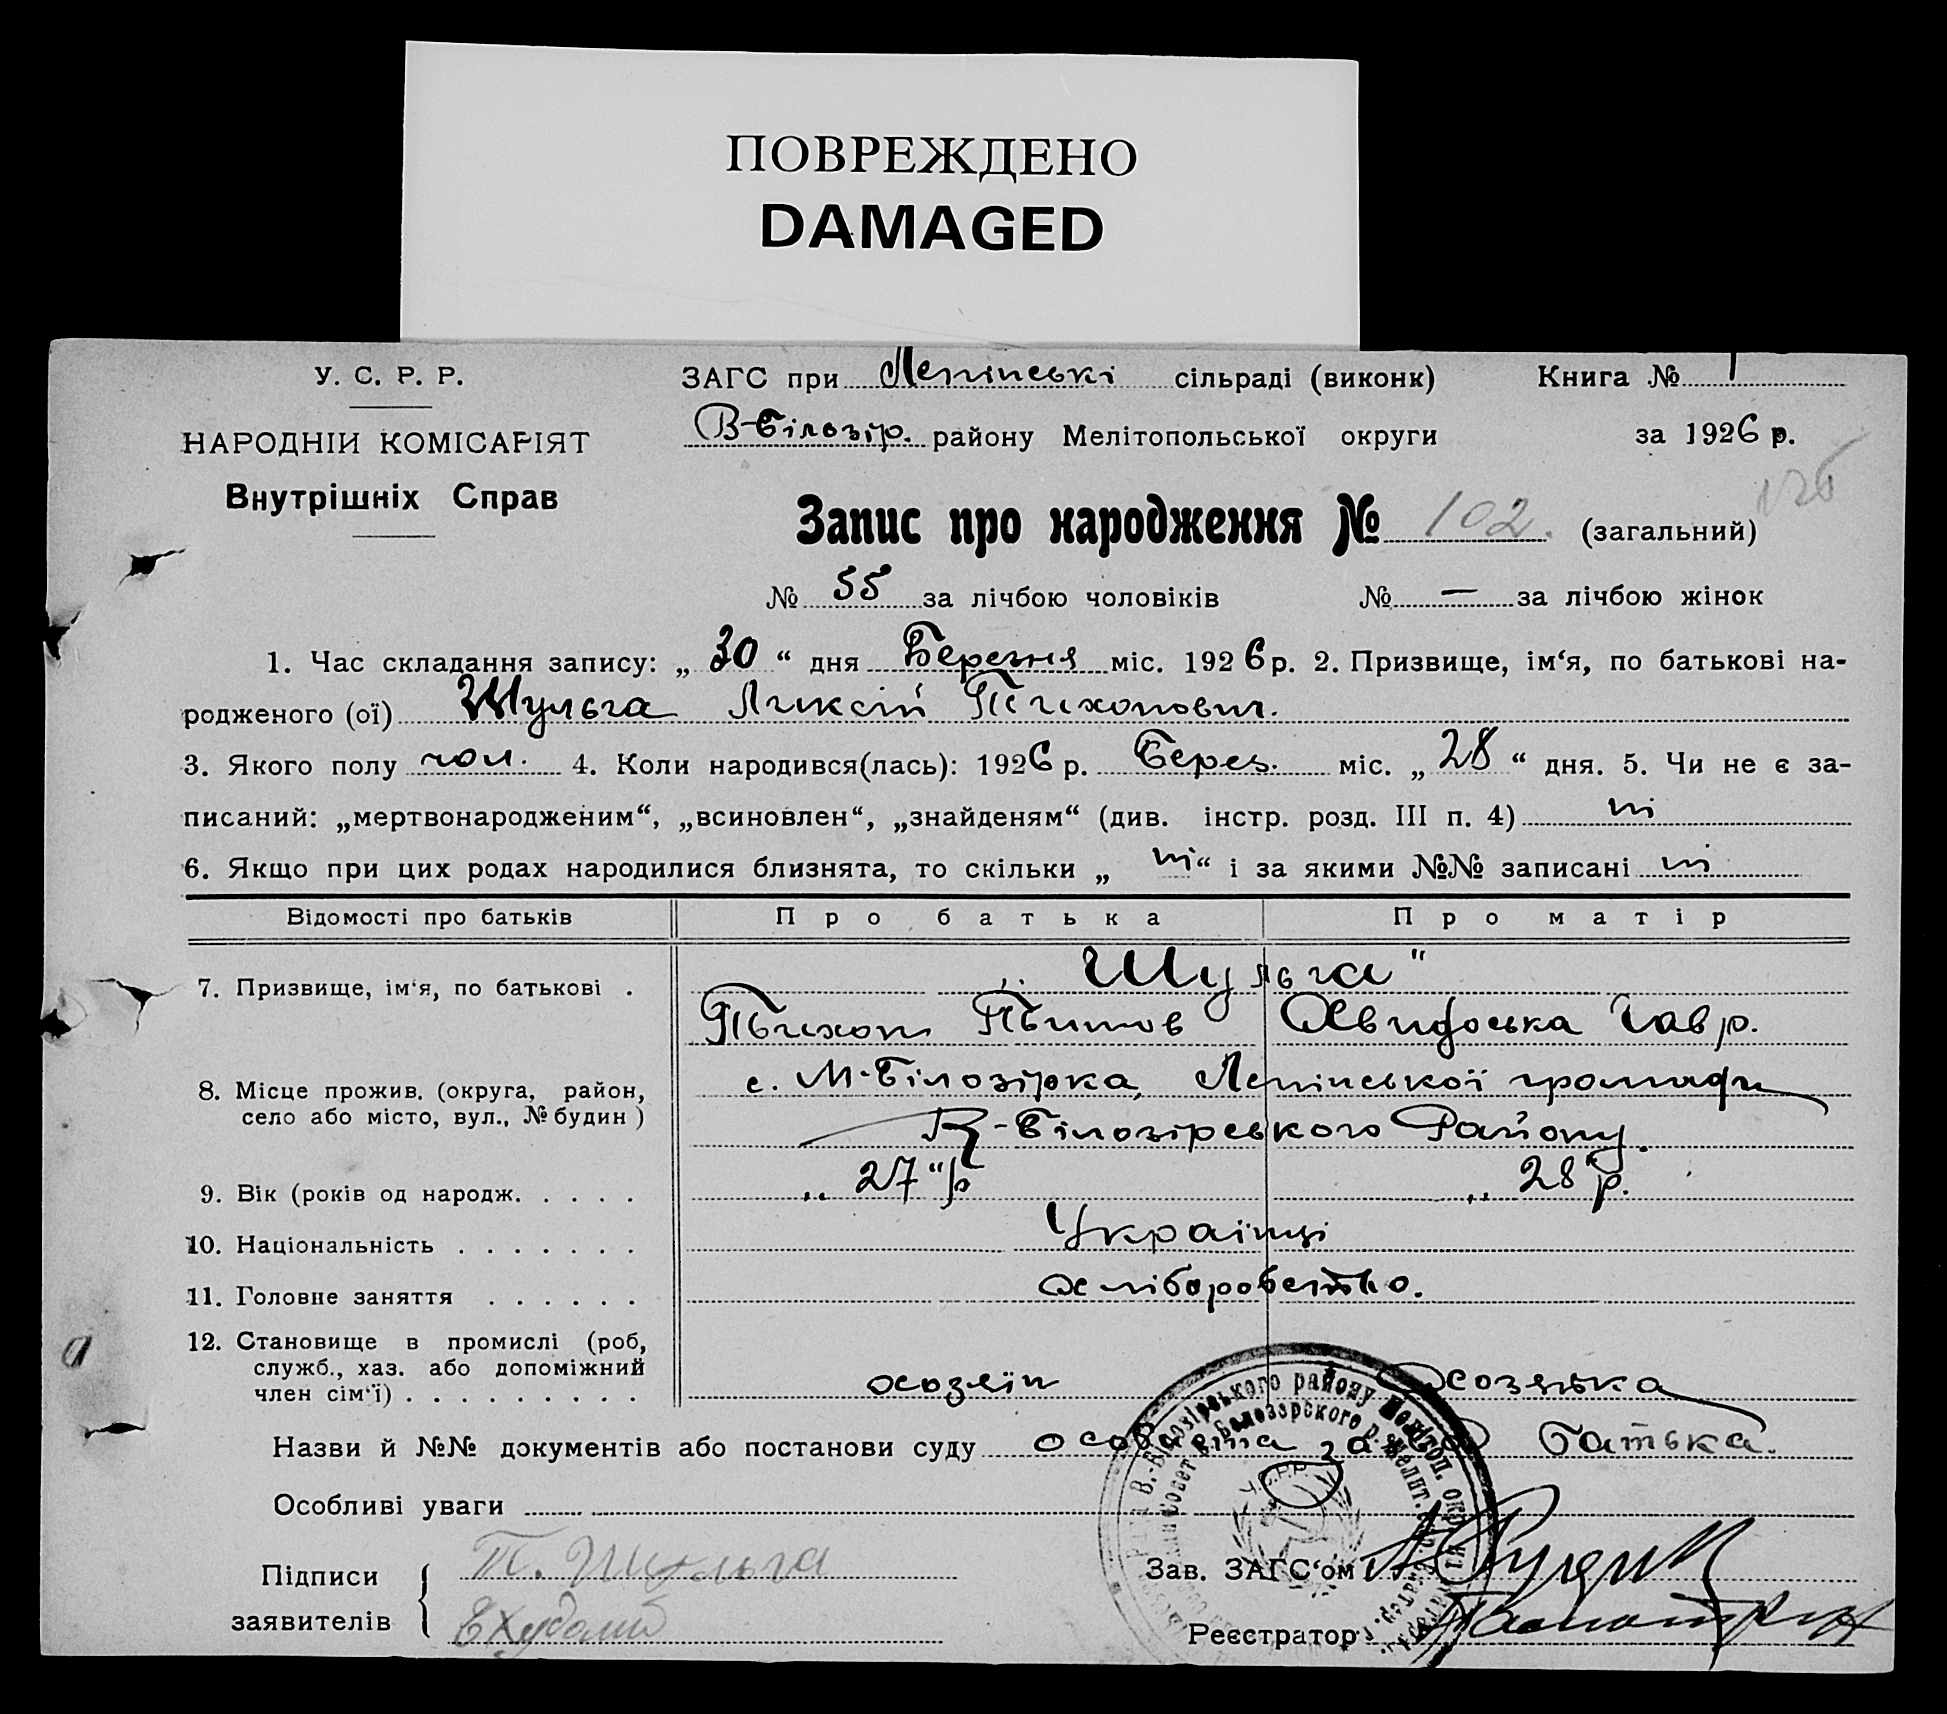 ПОВРЕЖДЕНО
DAMAGED
У. С. Р. Р.
ЗАГС при Ленінські сільраді (виконк) Книга № 1
НАРОДНІИ КОМІСАРІЯТ
В-Білозір. району Мелітопольської округи за 1926 р.
Внутрішніх Справ
Запис про народження № 102. (загальний)
№ 55 за лічбою чоловіків № — за лічбою жінок
1. Час складання запису: „ 30 “ дня Березня міс. 1926 р. 2. Призвище, ім‘я, по батькові на-
родженого (ої) Шульга Аликсій Тихонович.
3. Якого полу чол. 4. Коли народився(лась): 1926 р. Берез. міс. „ 28 “ дня. 5. Чи не є за-
писаний: „мертвонародженим“, „всиновлен“, „знайденям“ (див. інстр. розд. III п. 4) ні
6. Якщо при цих родах народилися близнята, то скільки „ ні “ і за якими №№ записані ні
Відомості про батьків Про батька Про матір
7. Призвище, ім‘я, по батькові . „Шульга"
Тихон Титов Хвидоська Гавр.
8. Місце прожив. (округа, район, село або місто, вул., № будин ) с. М-Білозірка, Ленінської громади
В-Білозірського Району.
9. Вік (років од народж. . . . . „ 27 " р „ 28 " р.
10. Національність . . . . . . . Українці
11. Головне заняття . . . . . . Хліборобство.
12. Становище в промислі (роб,
служб., хаз. або допоміжний
член сім‘ї) . . . . . . . . . хозяїн Хозяйка
Назви й №№ документів або постанови суду батька.
Особливі уваги
Підписи Т. Шульга
заявителів
Зав. ЗАГС‘ом
Реєстратор
У.С.Р.Р.